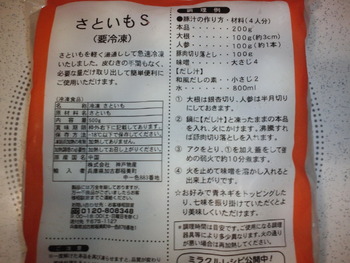 さといもS
(要冷凍)
さといもを軽く湯通しして急速冷凍
いたしました。皮むきの手間もなく、
必要な量だけ取り出して簡単便利に
ご使用いただけます。
[冷凍食品]
名 称 冷凍 さといも
原材料名 さといも
内容量 500g
賞味期限 枠外右下に記載してあります。
保存方法 -18℃以下で保存してください。
凍結前加熱の有無 加熱してありません。
加熱調理の必要性 加熱してお召し上がりください。
原産国 中国
輸入者 株式会社 神戸物産
兵庫県加古郡稲美町
中一色883番地
0120-808348
調理例
●豚汁の作り方・材料(4人分)
本品・・・・・・・・200g
大根・・・・・・100g(約3cm)
人参・・・・・・100g(約1本)
豚肉切り落とし・・・・・100g
味噌・・・・・・・大さじ4
【だし汁】
和風だしの素・・・・小さじ2
水・・・・・・・・・800ml
① 大根は銀杏切り、人参は半月切り
にしておきます。
② 鍋に【だし汁】と凍ったままの本品
を入れ、火にかけます。沸騰すれ
ば豚肉切り落としを入れます。
③ アクをとり、①を加え蓋をして
きめの弱火で約10分煮ます。
④ 火を止めて味噌を溶かし入れると
出来上がりです。
☆お好みで青ネギをトッピングした
り、七味を振り掛けていただくと
より美味しくいただけます。
*調理時間は目安です。ご使用になる調理
器具等により多少異なります。火の通り
が悪い場合は再加熱してください。
ミラクルレシピ公開中!